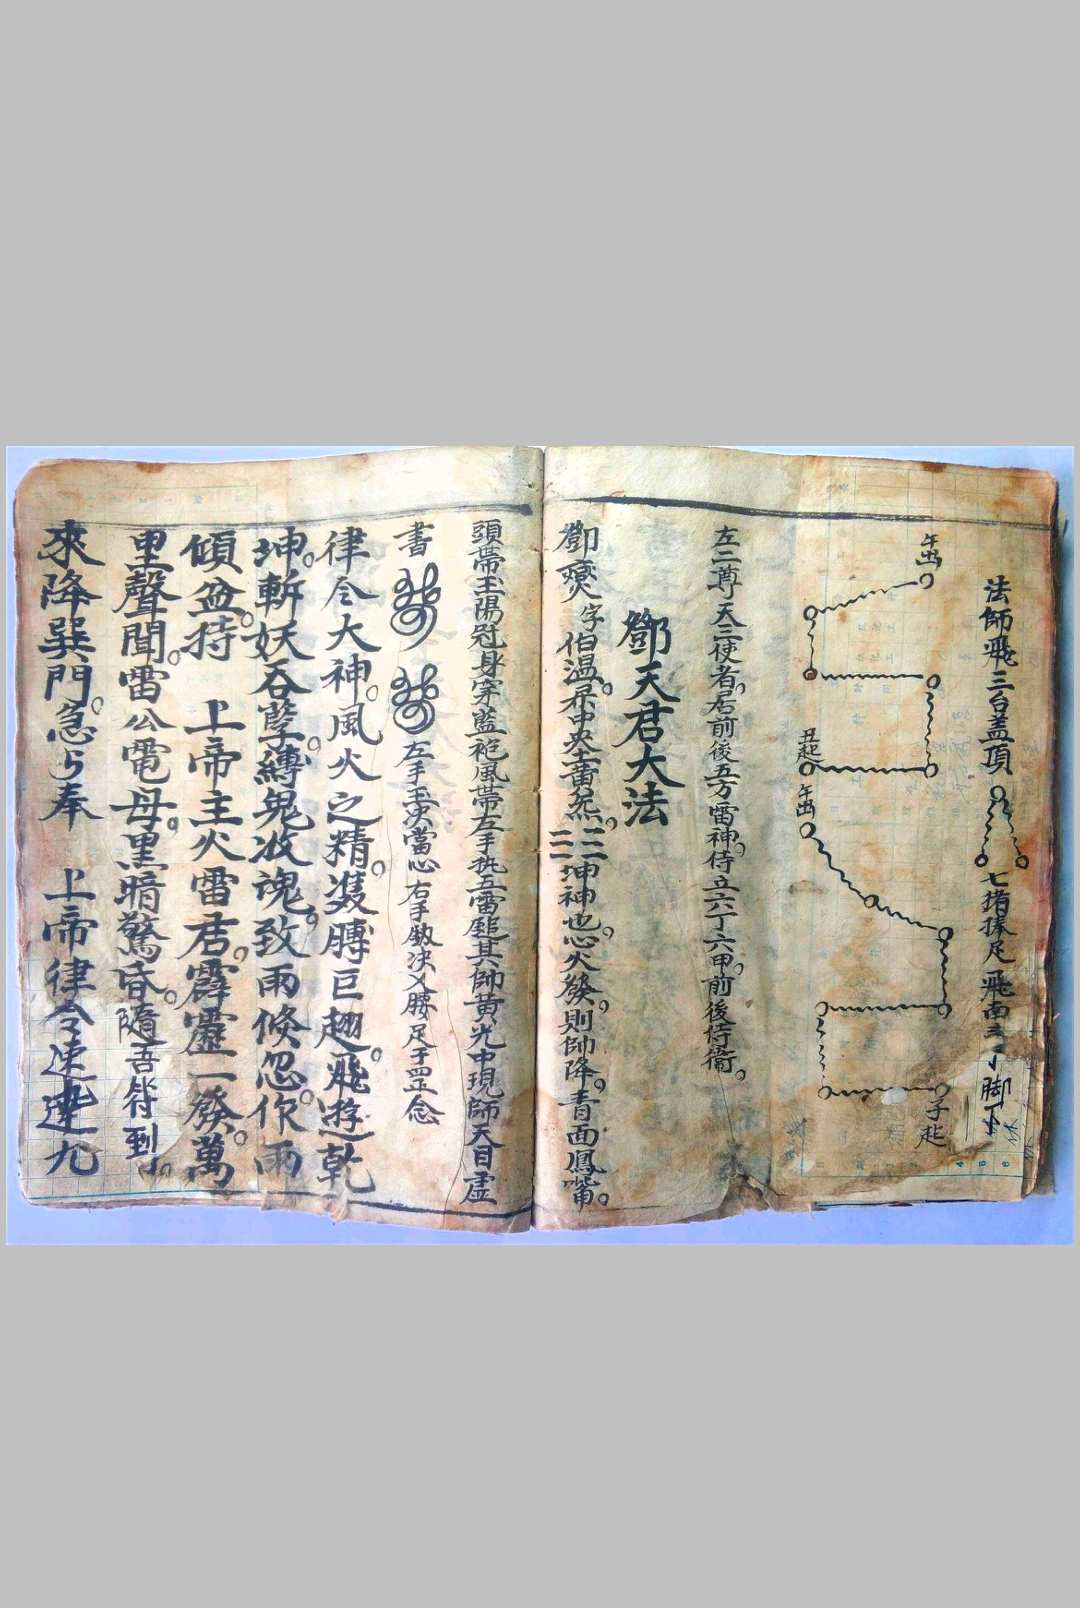 法師飛三台盖頂
七猪捧足
飛南
脚下
午出
丑起
午出
子起
左二尊天二使者。居前後五方雷神。侍立六丁六甲。前後侍衛。
鄧天君大法
鄧燮字伯温。禀中央土黄炁。坤神也。心火發。則帥降。青面鳳嘴。
頭帯玉陽冠身穿藍袍風帯左手执五雷鎚其帥黄光中現師天目虚
書
左手玉决當心右手劍决乂腰足子罡念
律令大神。風火之精。膊巨翅。飛遊乾
坤。斬妖吞孽。縛鬼收魂。致雨倏忽。作雨
傾盆。持 上帝主火雷君。霹靂一發。萬
里聲聞。雷公電母。黑暗驚昏。随吾符到。
來降巽門。急ㄣ奉 上帝律令速達九